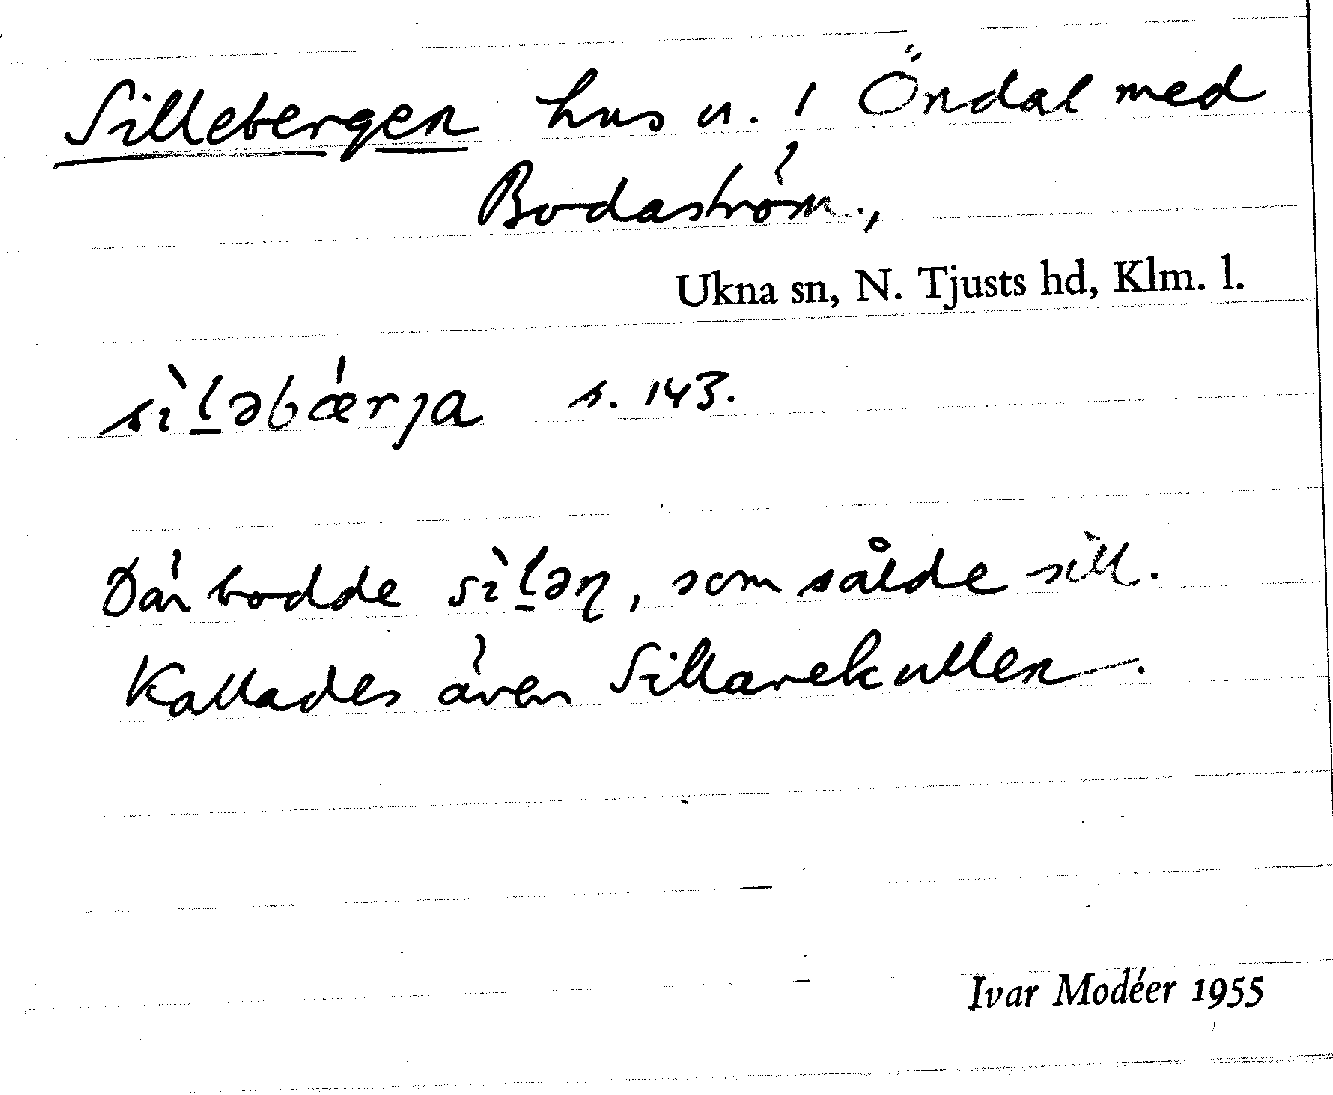 Sillebergen hus n. i Öndal med
Bodaström.,
Ukna sn, N. Tjusts hd, Klm. l.
sìl̠əbǽrja s. 143.
Där bodde sìl̠əɳ, som sålde sill.
Kallades även Sillarekullen.
Ivar Modéer 1955